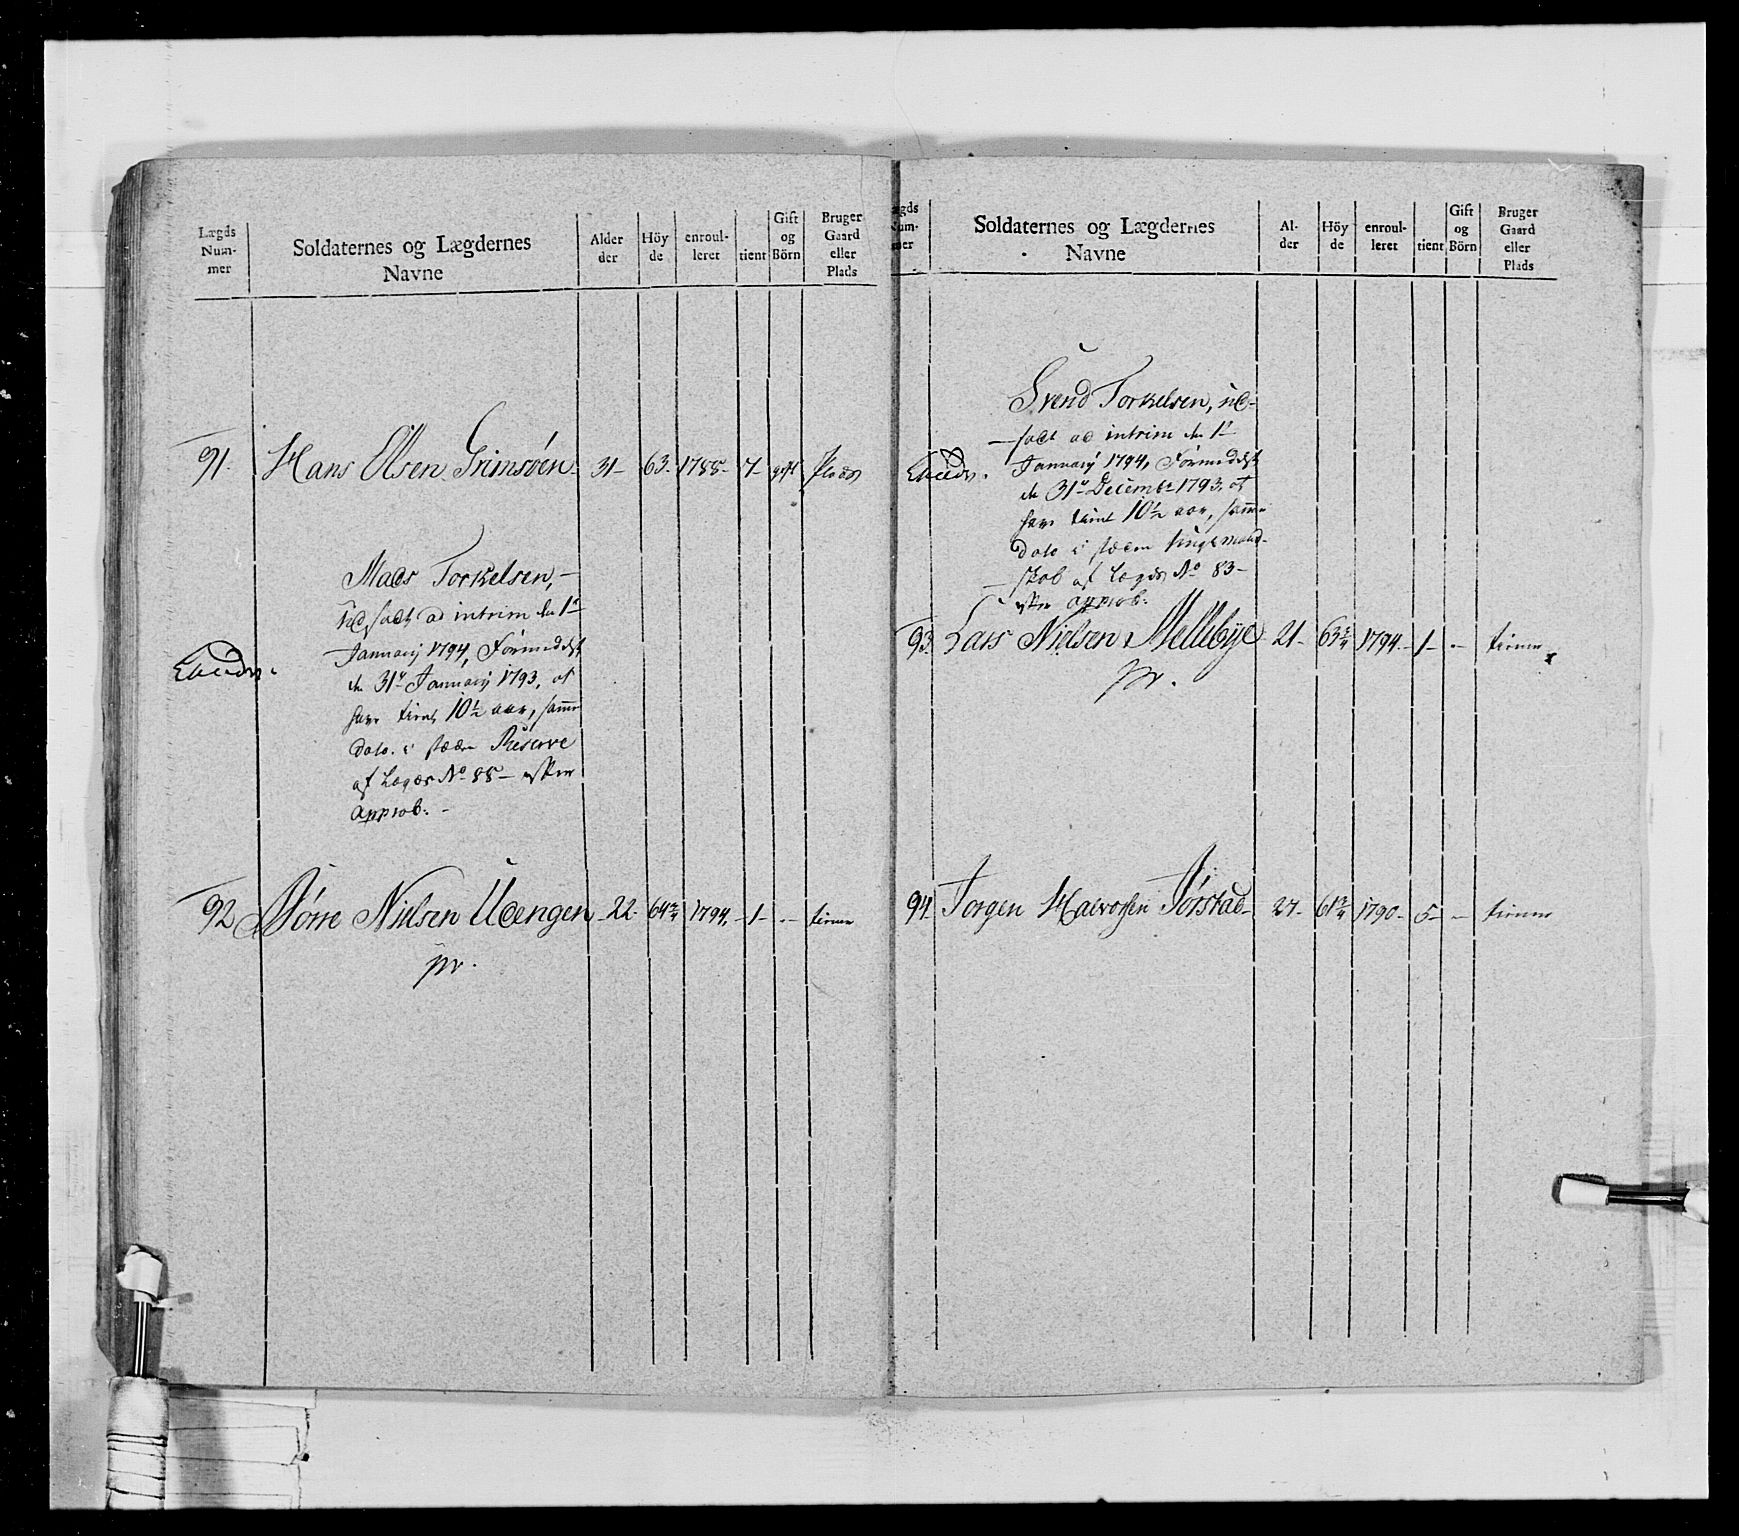 Lægds
Num-
mer
Soldaternes og Lægdernes
Navne
Alder
der
Höy
de
enroul-
leret
tient
Gift
og
Börn
Bruger
Gaard
eller
Plads
91. Hans Olsen Grimsöen 31- 63- 1788- 7- gift Plads
Mads Torkelsen,
udsadt ad intrim den 1te
Januarij 1794, Formedelst
den 31te Januarij 1793, at
have tient 10½ aar, samme
Dato. i stæden Reserve
af Lægds No 88-
approb.
92 Nielsen Uengen 22. 64 2/4 1794. 1- - tiener
pr.
ægds
Num-
mer
Soldaternes og Lægdernes
Navne
Al-
der
Höy
de
enroul-
leret
tient
Gift
og
Börn
Bruger
Gaard
eller
Plads
Svend Torkelsen, ud-
sadt ad intrim den 1te
Januarij 1794, Formedelst
den 31te December 1793. at
have tient 10½ aar, samme
Dato i stæden
af Lægds No 83-
approb.
93. Lars Nielsen Mellebye 21- 63 1794- 1- - tiener
pr.
94. Jorgen Halvorsen Jörstad 27- 61 1790- 5- - tiener